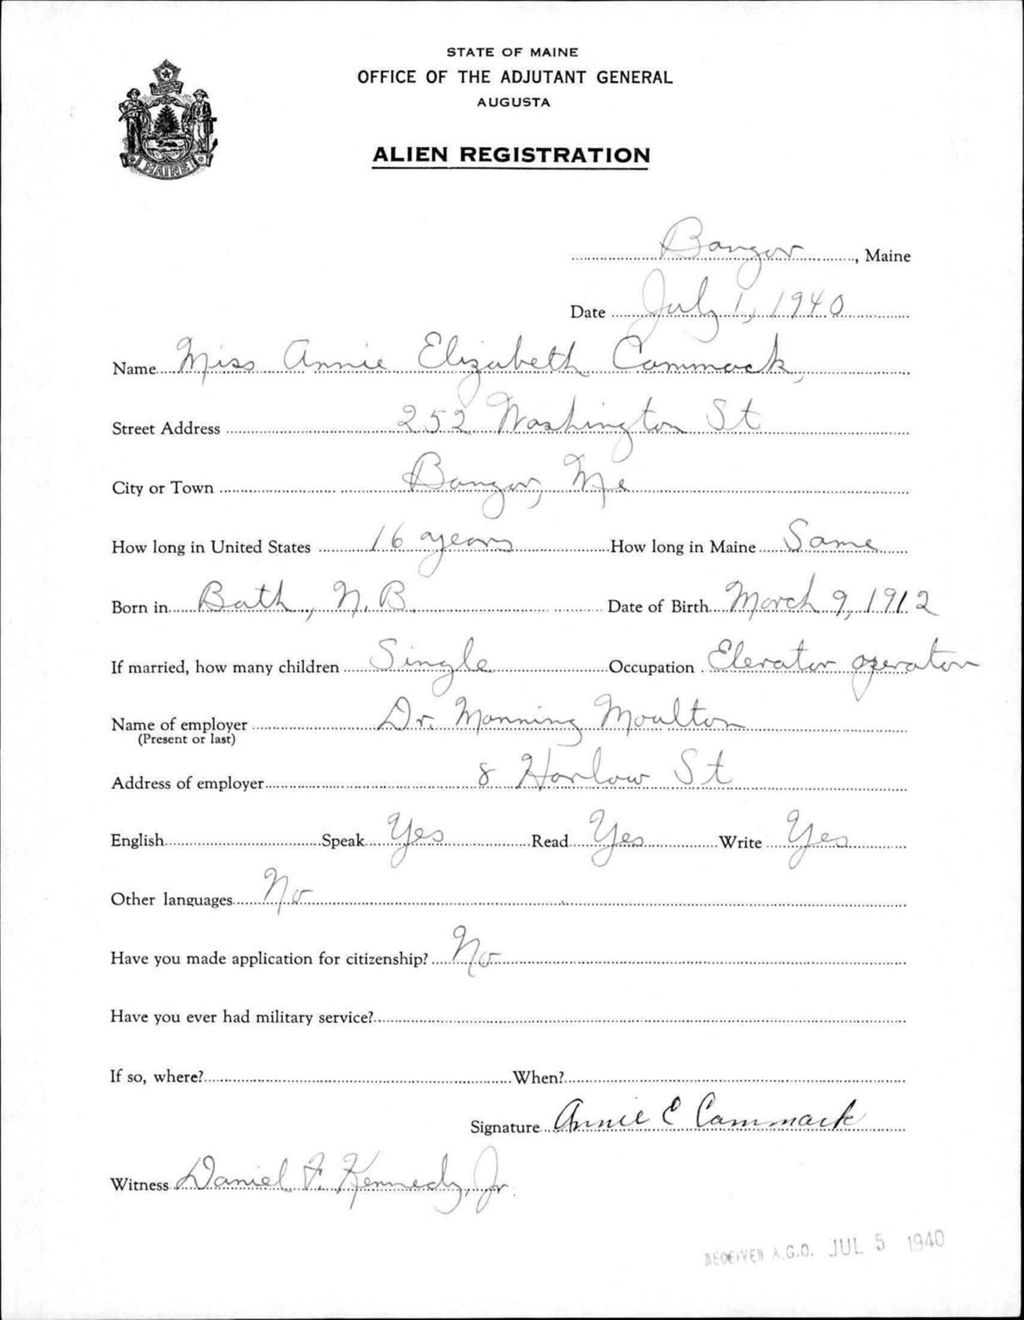 STATE OF MAINE
OFFICE OF THE ADJUTANT GENERAL
AUGUSTA
ALIEN REGISTRATION
MAINE
Bangor, Maine
Date July 1, 1940
Name Miss Annie Elizabeth Cammack,
Street Address 252 Washington St
City or Town Bangor, Me
How long in United States 16 years How long in Maine Same
Born in Bath, N.B. Date of Birth March 9, 1912
If married, how many children Single Occupation Elevator operator
Name of employer Dr. Manning Moulton
(Present or last)
Address of employer 8 Harlow St
English Speak Yes Read Yes Write Yes
Other languages No
Have you made application for citizenship? No
Have you ever had military service?
If so, where? When?
Signature Annie E Cammack
Witness Daniel F. Kennedy, Jr.
RECEIVED A.G.O. JUL 5 1940